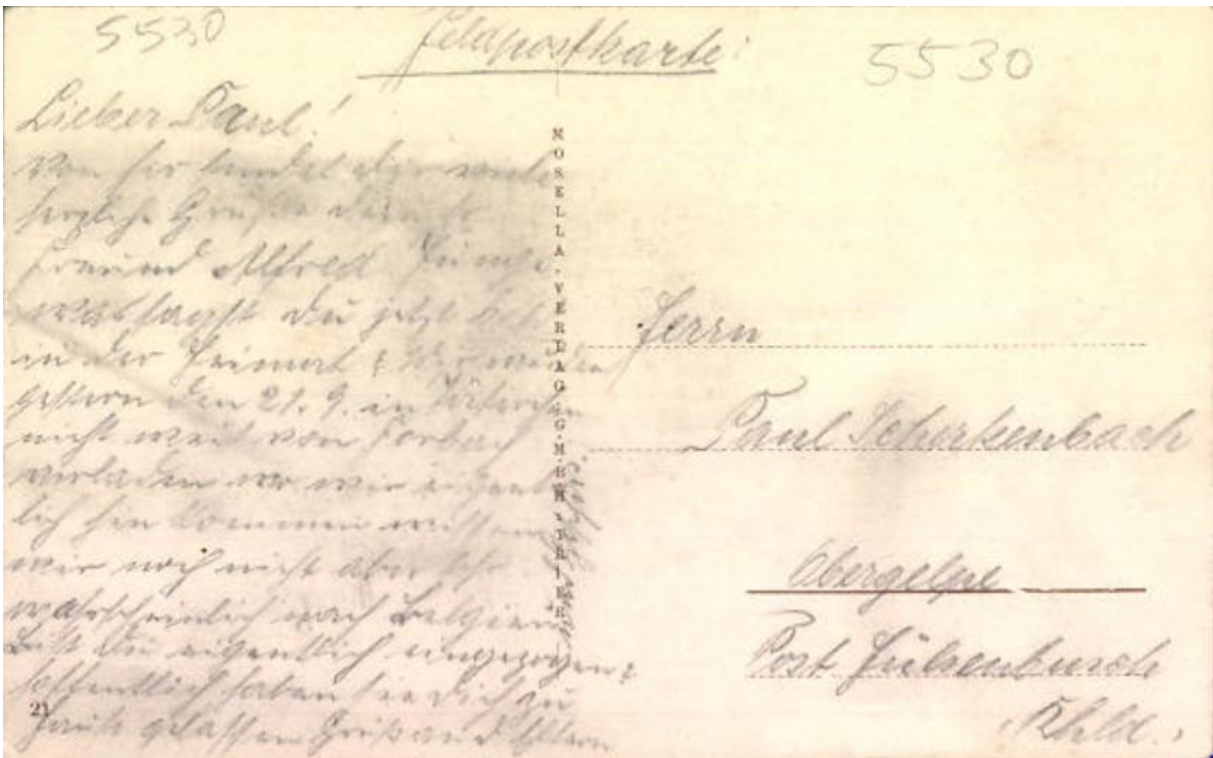 5530
Feldpostkarte:
5530
Lieber Paul!
Von hir sendet dir viele
herzliche Grüße dein
Freund Alfred.
was sagst du jetzt
in der Heimat? Wir wurden
gestern den 21.9. in
nicht weit von Forbach
verladen wo wir eigent
lich hin kommen wissen
wir noch nicht aber
wahrscheinlich nach Belgien
Bist Du eigentlich eingezogen?
hoffentlich haben sie dich zu
Hause gelassen Gruß an d Eltern
MOSELLA-VERLAG G.M.B.H. TRIER
21
Herrn
Paul Scherkenbach
Obergelpe
Post Hülsenbusch
Rhld.